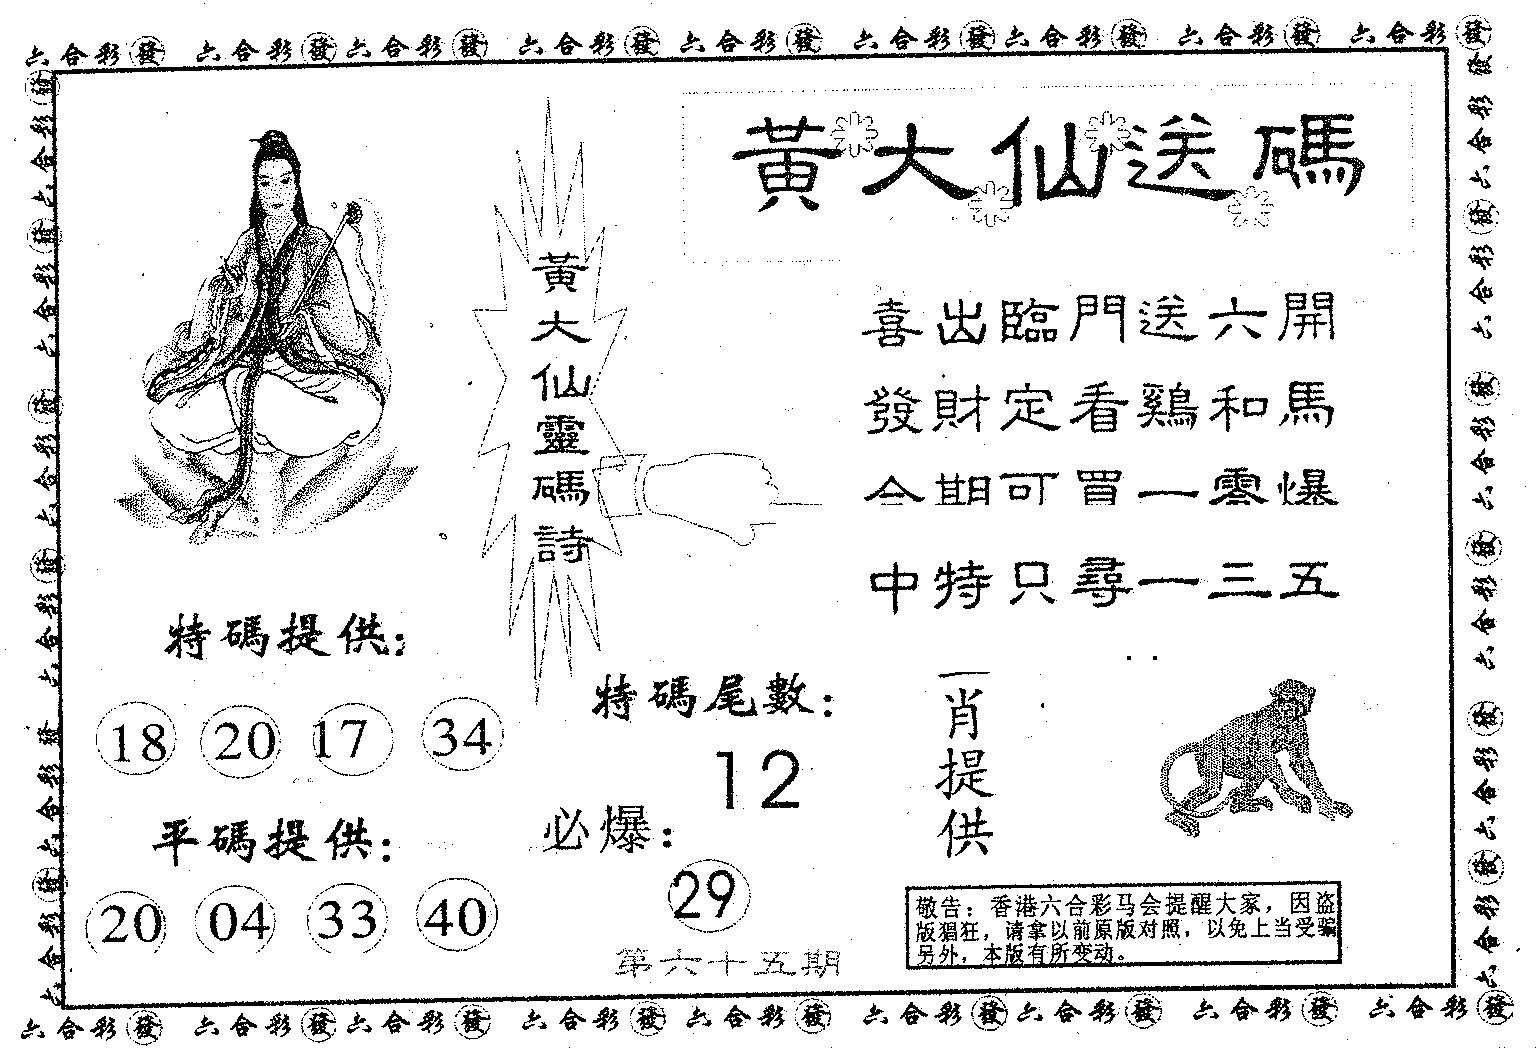 六合彩發 六合彩發 六合彩發 六合彩發 六合彩發 六合彩發 六合彩發 六合彩發 六合彩發
黃大仙送碼
黃大仙靈碼詩
喜出臨門送六開
發財定看鷄和馬
今期可買一零爆
中特只尋一三五
特碼提供：
18 20 17 34
平碼提供：
20 04 33 40
特碼尾數：
12
必爆：
29
第六十五期
一肖提供
敬告：香港六合彩马会提醒大家，因盗
版猖狂，请拿以前原版对照，以免上当受骗
另外，本版有所变动。
六合彩發 六合彩發 六合彩發 六合彩發 六合彩發 六合彩發 六合彩發 六合彩發 六合彩發